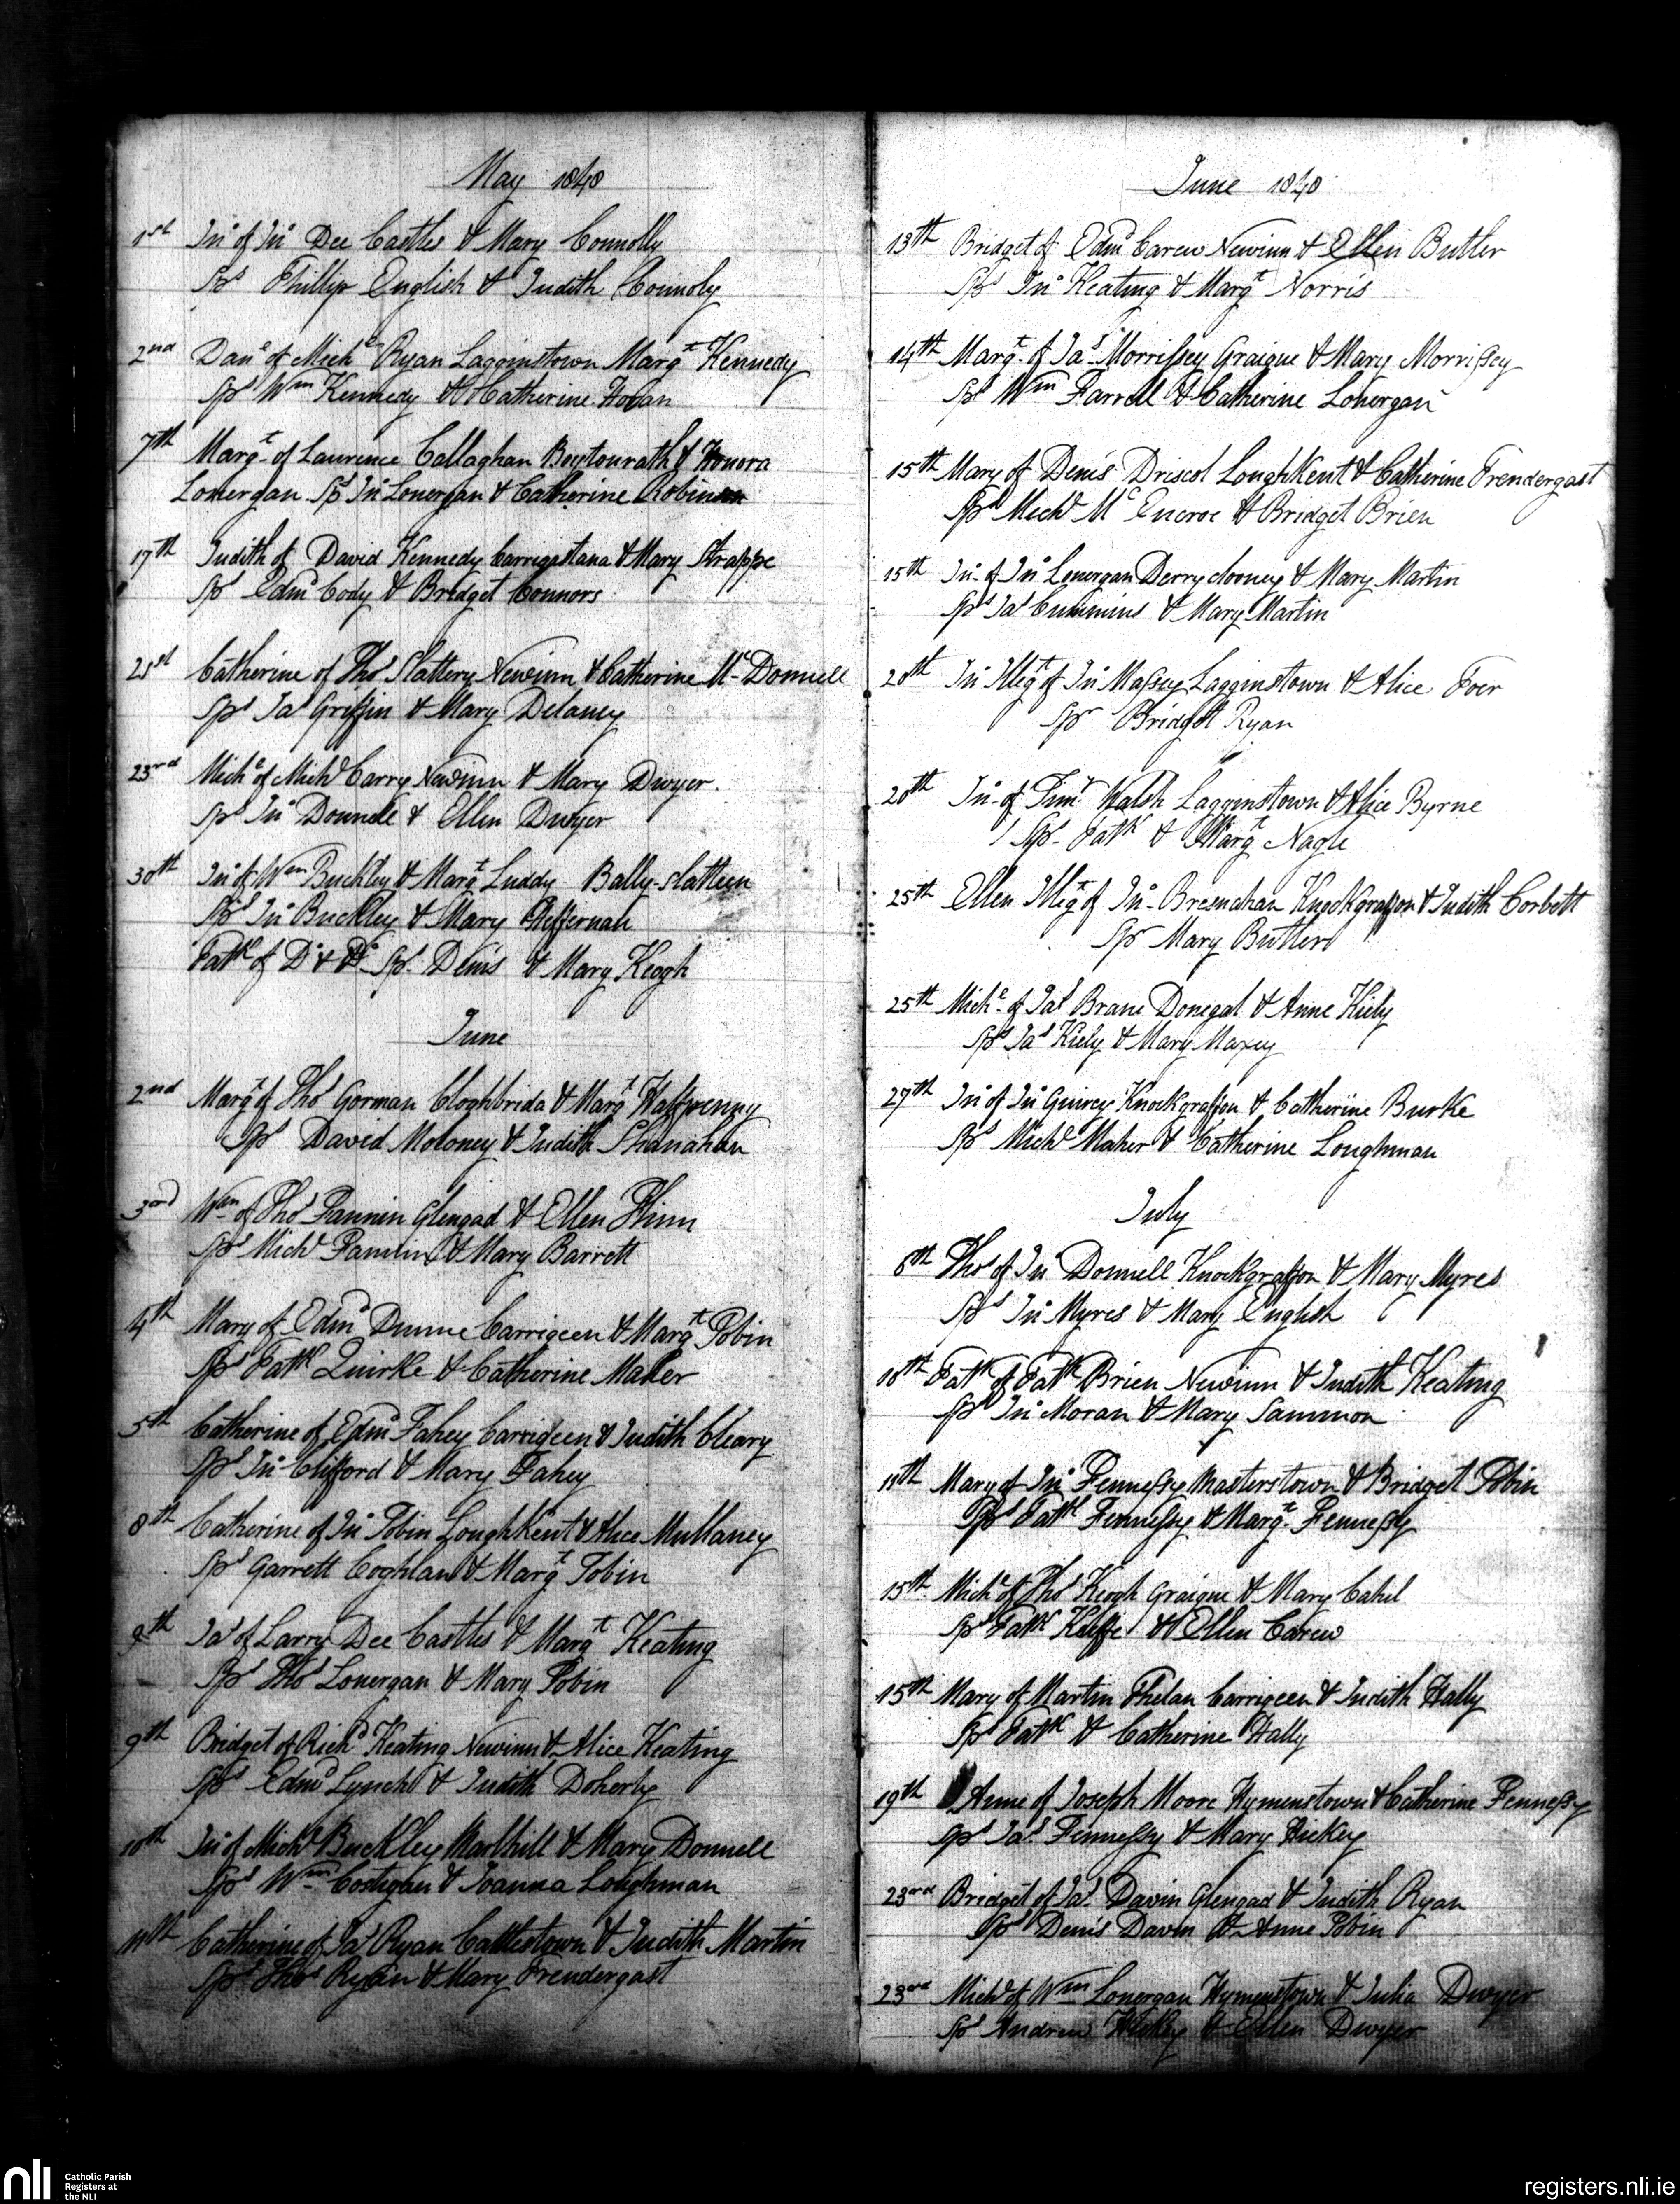 May 1840
1st Jno of Jno Dee Castles & Mary Connolly
Sps Phillip English & Judith Connoly
2nd Danl of Michl Ryan Lagginstown Margt Kennedy
Sps Wm Kennedy & Catherine Hogan
7th Margt of Laurence Callaghan Boytonrath & Honora
Lonergan Sps Jno Lonergan & Catherine Robinson
17th Judith of David Kennedy Carrigatana & Mary Strappe
Sps Edmd Cody & Bridget Connors
21st Catherine of Thos Slattery Newinn & Catherine Mc Donnell
Sps Jas Griffin & Mary Delaney
23rd Michl of Michl Carry Newinn & Mary Dwyer.
Sps Jno Donnell & Ellen Dwyer
30th Jno of Wm Buckley & Margt Luddy Bally-slatteen
Sps Jno Buckley & Mary Heffernan
Patk of Do & Do Sps Denis & Mary Keogh
June
2nd Margt of Thos Gorman Cloghbrida & Margt Halfpenny
Sps David Moloney & Judith Shanahan
3rd Wm of Thos Fannin Glengad & Ellen Flinn
Sps Michl Fannin & Mary Barrett
4th Mary of Edmd Dunne Carrigeen & Margt Tobin
Sps Patk Quirke & Catherine Maher
5th Catherine of Edmd Fahey Carrigeen & Judith Cleary
Sps Jno Clifford & Mary Fahey
8th Catherine of Jno Tobin LoughKent & Alice Mullaney
Sps Garrett Coghlan & Margt Tobin
9th Jas of Larry Dee Castles & Margt Keating
Sps Thos Lonergan & Mary Tobin
9th Bridget of Richd Keating Newinn & Alice Keating
Sps Edmd Lynch & Judith Doherty
10th Jno of Michl Buckley Marlhill & Mary Donnell
Sps Wm Costigan & Joanna Loughman
11th Catherine of Jas Ryan Cattlestown & Judith Martin
Sps Thos Ryan & Mary Prendergast
June 1840
13th Bridget of Edmd Carew Newinn & Ellen Butler
Sps Jno Keating & Margt Norris
14th Margt of Jas Morrissey Graigue & Mary Morrissey
Sps Wm Farrell & Catherine Lonergan
15th Mary of Denis Driscol LoughKent & Catherine Prendergast
Sps Michl Mc Encroe & Bridget Brien
15th Jno of Jno Lonergan Derryclooney & Mary Martin
Sps Jas Cummins & Mary Martin
20th Jno Illegt of Jno Massey Lagginstown & Alice Poer
Spr Bridget Ryan
20th Jno of Timy Walsh Lagginstown & Alice Byrne
Sps Patk & Margt Nagle
25th Ellen Illegt of Jno Bresnehan Knockgraffon & Judith Corbett
Spr Mary Butler
25th Michl of Jas Brane Donegal & Anne Kiely
Sps Jas Kiely & Mary Maxey
27th Jno of Jno Guirey Knockgraffon & Catherine Burke
Sps Michl Maher & Catherine Loughman
July
6th Thos of Jno Donnell Knockgraffon & Mary Myres
Sps Jno Myres & Mary English
10th Patk of Patk Brien Newinn & Judith Keating
Sps Jno Moran & Mary Sammon
11th Mary of Jno Fennessy Masterstown & Bridget Tobin
Sps Patk Fennessy & Margt Fennessy
15th Michl of Thos Keogh Graigue & Mary Cahil
Sps Patk Keiffe & Ellen Carew
15th Mary of Martin Phelan Carrigeen & Judith Hally
Sps Patk & Catherine Hally
19th Anne of Joseph Moore Hymenstown & Catherine Fennessy
Sps Jas Fennessy & Mary Hickey
23rd Bridget of Jas Davin Glengad & Judith Ryan
Sps Denis Davin & Anne Tobin
23rd Michl of Wm Lonergan Hymenstown & Julia Dwyer
Sps Andrew & Ellen Dwyer
nli Catholic Parish
Registers at
the NLI
registers.nli.ie